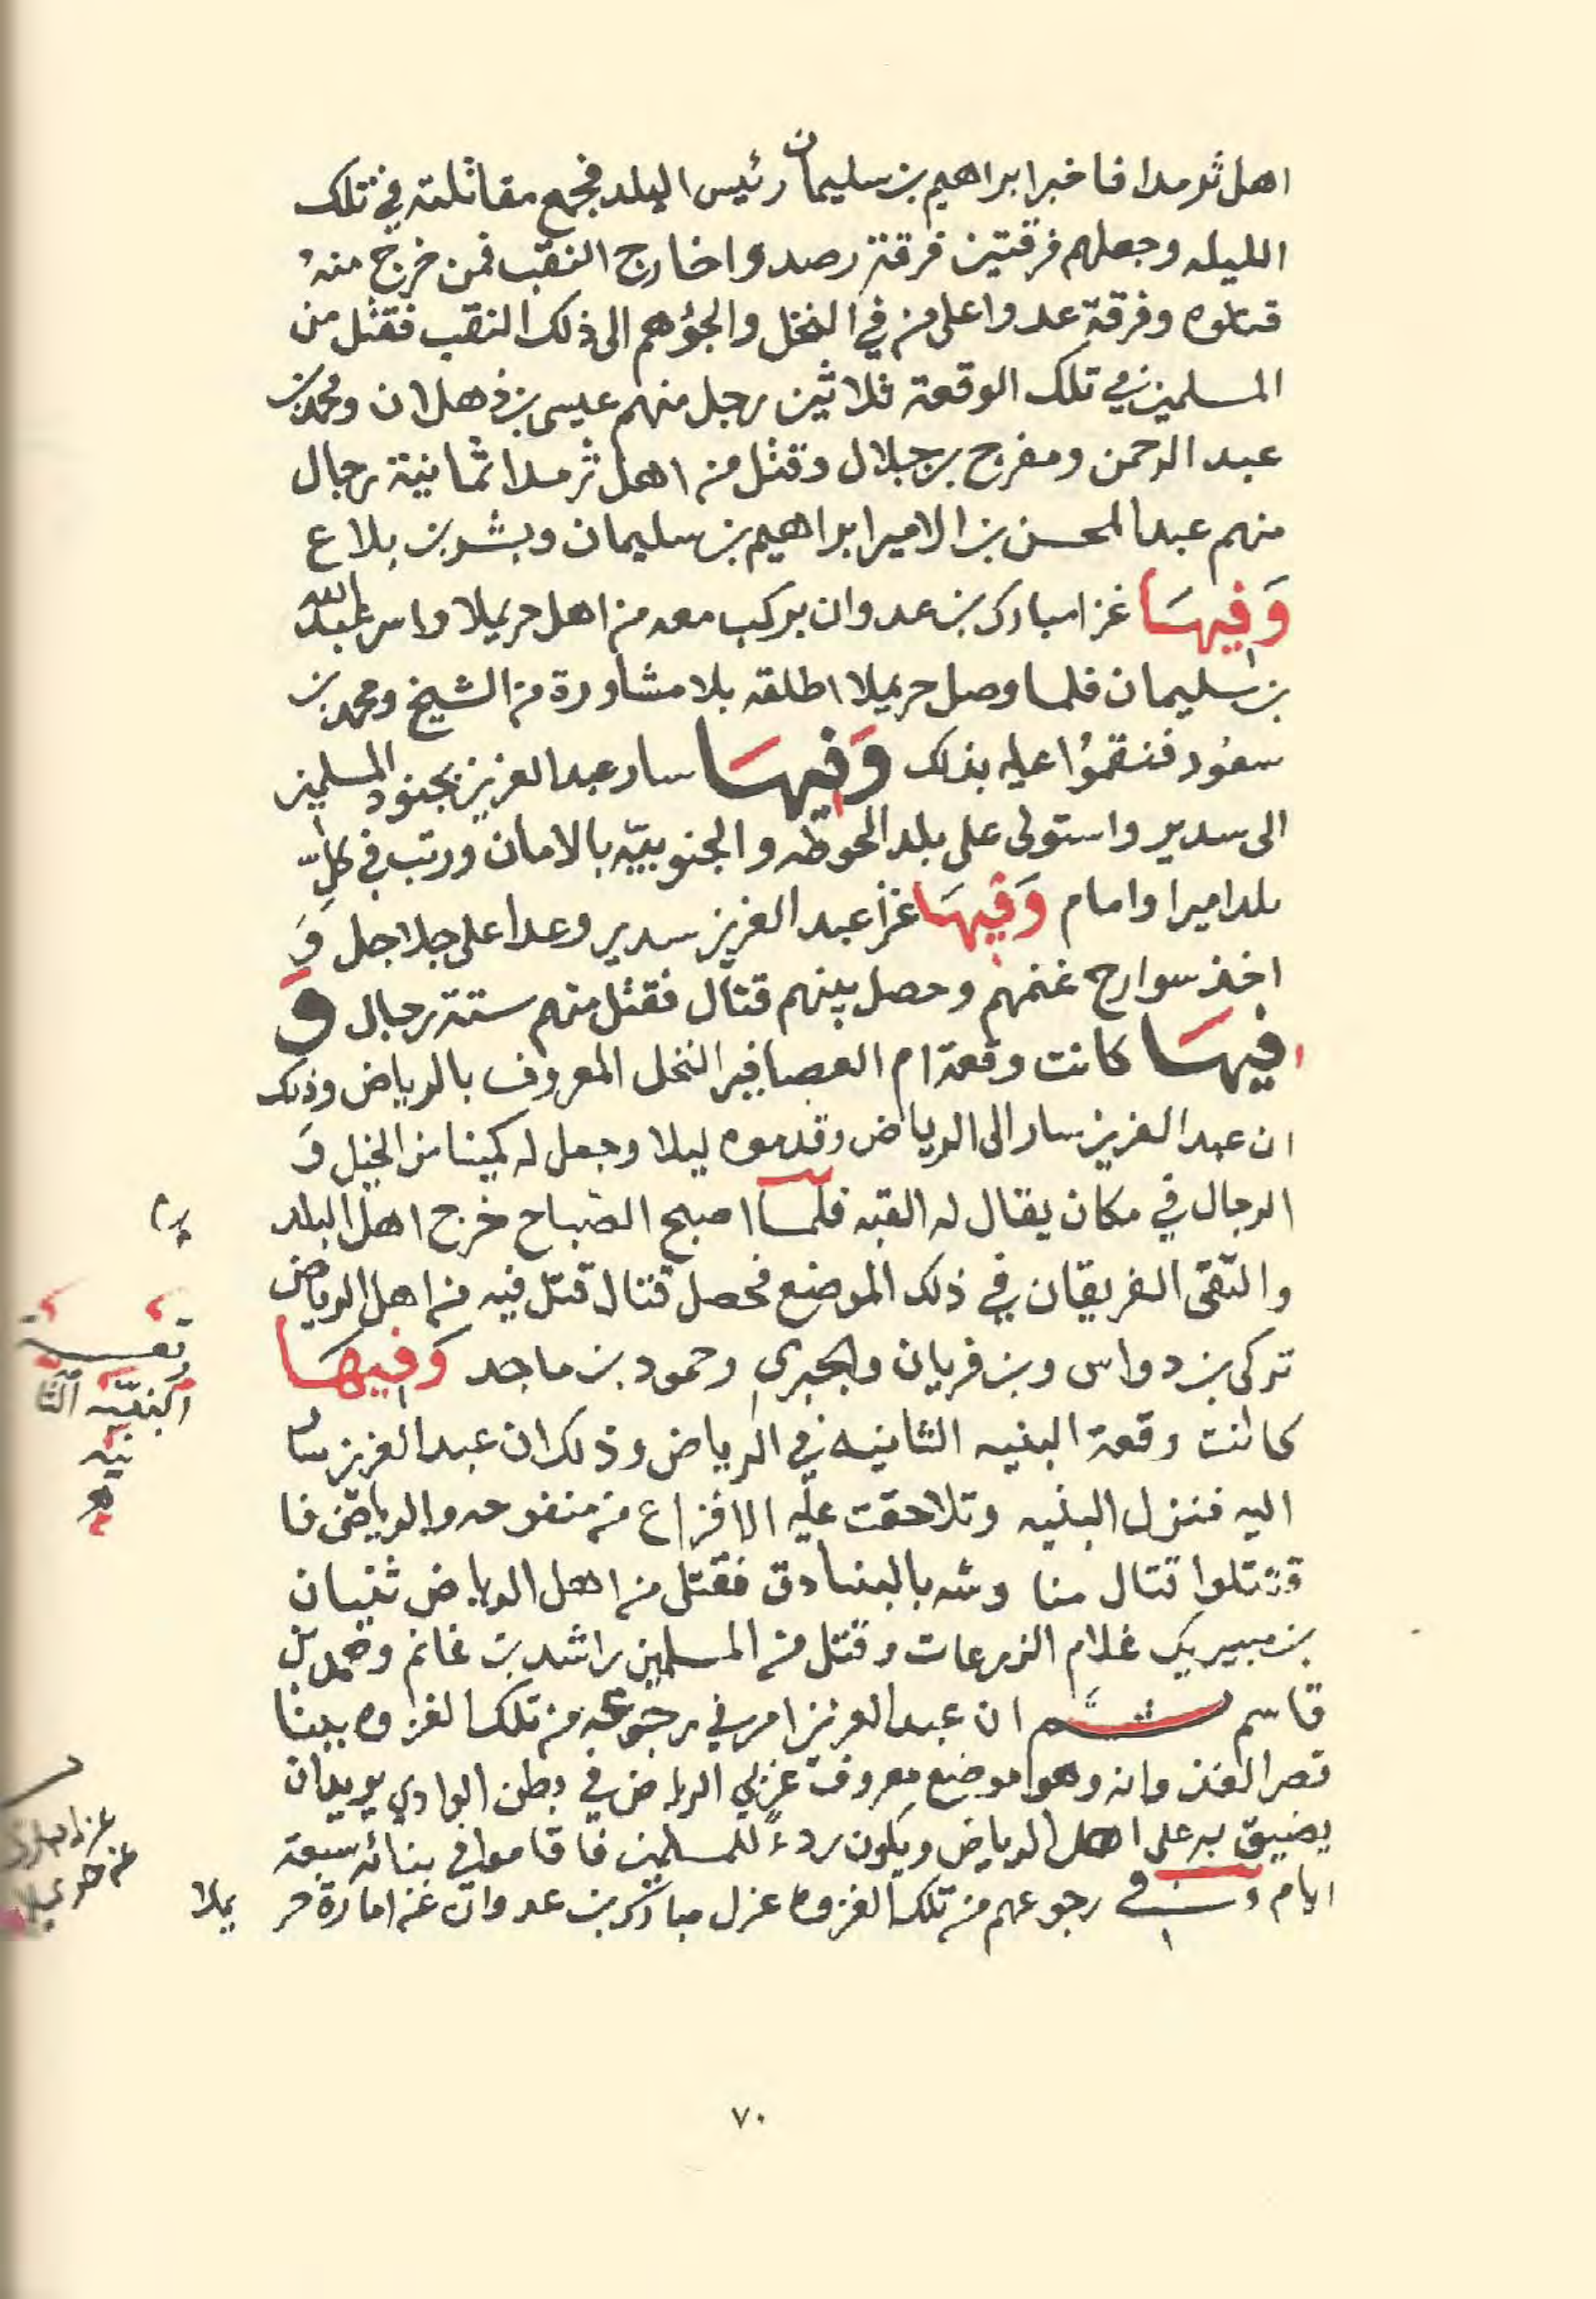 اهل ثرمدا فاخبر ابراهيم بن سليمان رئيس البلد فجمع مقاتلته في تلك
الليله وجعلهم فرقتين فرقة رصدوا خارج النقب فمن خرج منهُ
قتلوه وفرقة عدوا على من في النخل والجؤهم الى ذلك النقب فقتل من
المسلمين في تلك الوقعة ثلاثين رجل منهم عيسى بن ذهلان ومحمد بن
عبد الرحمن ومفرح بن جلال وقتل من اهل ثرمدا ثمانية رجال
منهم عبد المحسن بن الامير ابراهيم بن سليمان وبشر بن بلاع
وَفِيهَا غزا مبارك بن عدوان بركب معه من اهل حريملا واسر عبد الله
بن سليمان فلما وصل حريملا اطلقه بلا مشاورة من الشيخ ومحمد بن
سعُود فنقموُا عليه بذلك وَفِيهَا سار عبد العزيز بجنود المسلمين
الى سدير واستولى على بلد الحوطه والجنوبيّه بالامان ورتب في كلّ
بلد اميرا وامام وَفِيهَا غزا عبد العزيز سدير وعدا على جلاجل وَ
اخذ سوارح غنمهم وحصل بينهم قتال فقتل منهم ستة رجال وَ
فِيهَا كانت وقعة ام العصافير النخل المعروف بالرياض وذلك
ان عبد العزيز سار الى الرياض وقدموه ليلا وجعل له كمينا من الخيل وَ
الرجال في مكان يقال له القبه فلما اصبح الصباح خرج اهل البلد
والتقى الفريقان في ذلك الموضع فحصل قتال قتل فيه من اهل الرياض
تركي بن دواس وبن فريان والجبري وحمود بن ماجد وَفِيهَا
كانت وقعة البنيه الثانيه في الرياض وذلك ان عبد العزيز سار
اليه فنزل البنيه وتلاحقت عليه الافزاع من منفوحه والرياض فا
قتتلوا قتال مناوشه بالبنادق فقتل من اهل الرياض ثنيان
بن مبيريك غلام الزرعات وقتل من المسلمين راشد بن غانم وحمد بن
قاسم ثم ان عبد العزيز امر في رجوعه من تلك الغزوه ببنا
قصر الغذوانه وهو موضع معروف غربي الرياض في بطن الوادي يريد ان
يضيق به على اهل الرياض ويكون ردءً للمسلمين فاقاموا في بنائه سبعة
ايام وفي رجوعهم من تلك الغزوه عزل مبارك بن عدوان عن امارة حر يملا
وقعـــة
البنيّه الثا
نيه
عزل مبارك
عن حريملا
٧٠